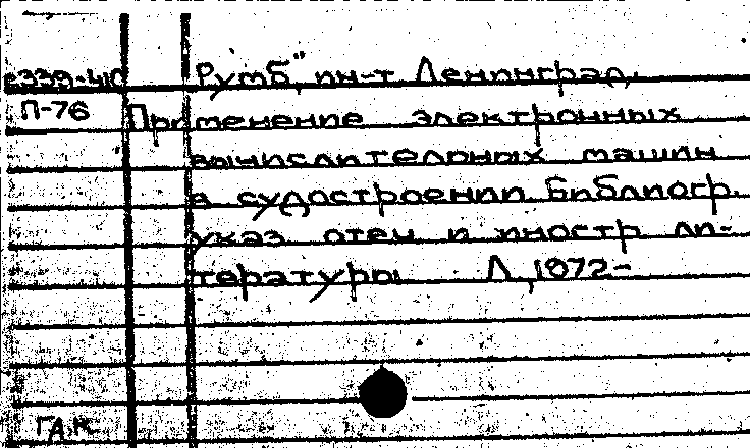 е339-410 Румб", ин-т. Ленинград.
П-76 Применение электронных
вычислительных машин
в судостроении. Библиогр.
указ. отеч. и иностр. ли-
тературы. Л., 1972-
ГАК